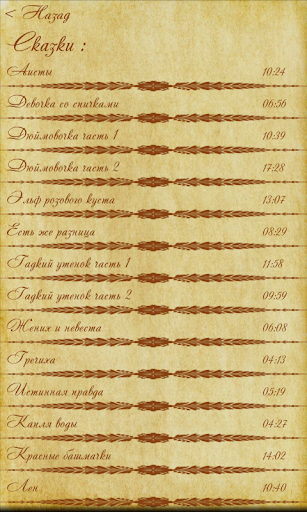 < Назад
Сказки :
Аисты 10:24
Девочка со спичками 06:56
Дюймовочка часть 1 10:39
Дюймовочка часть 2 17:28
Эльф розового куста 13:07
Есть же разница 08:29
Гадкий утенок часть 1 11:58
Гадкий утенок часть 2 09:59
Жених и невеста 06:08
Гречиха 04:13
Истинная правда 05:19
Капля воды 04:27
Красные башмачки 14:02
Лен 10:40